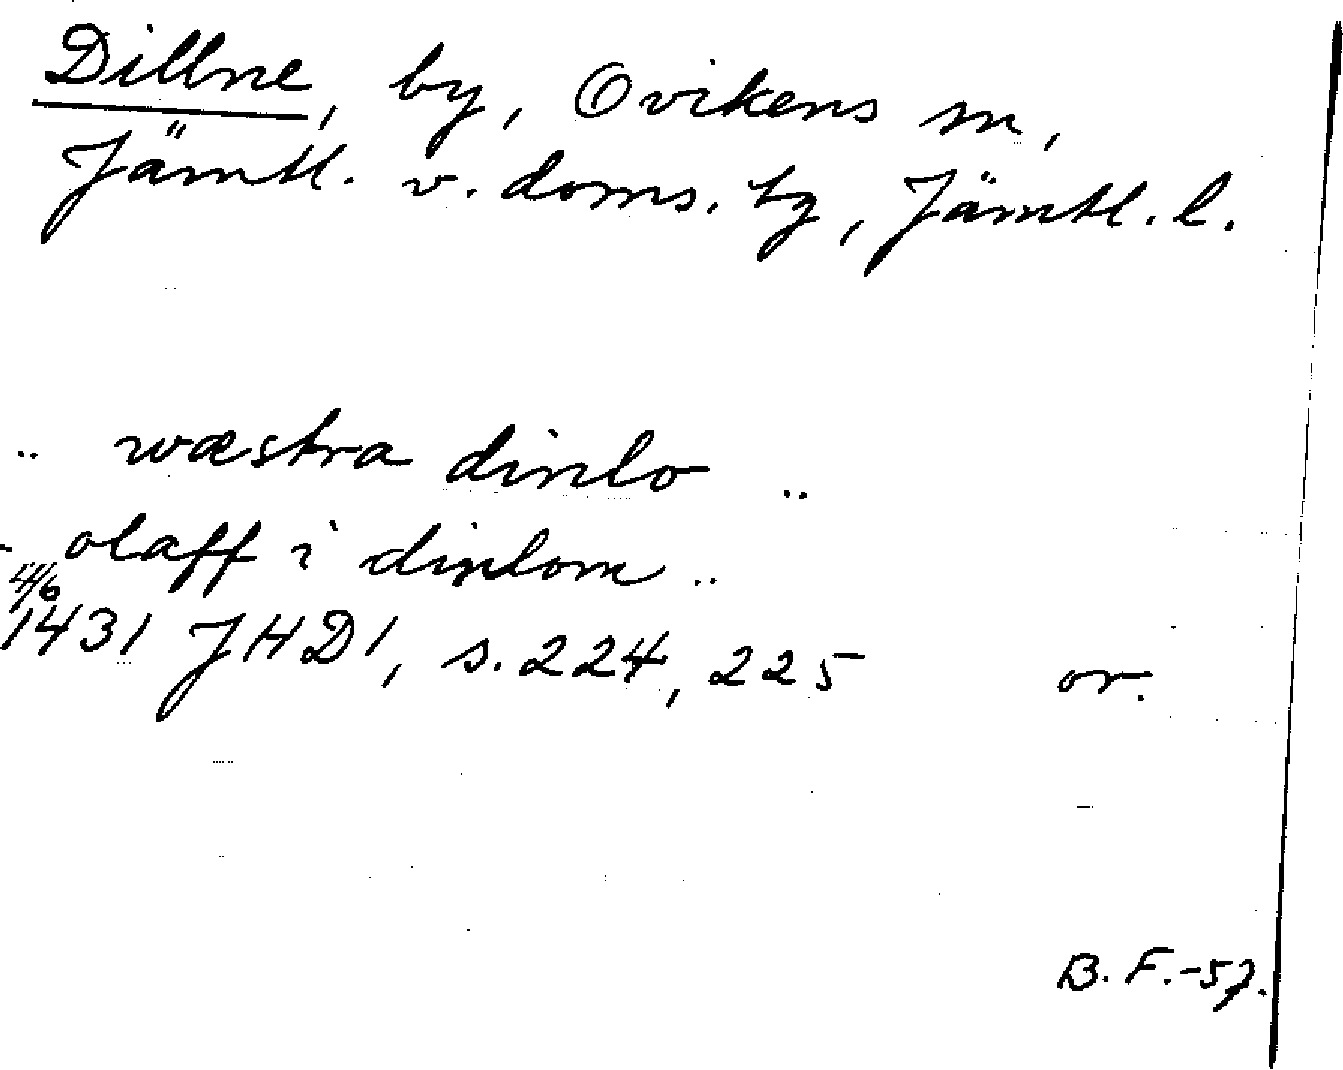 Dillne, by, Ovikens sn,
Jämtl. v. doms. tg, Jämtl. l.
.. wæstra dinlo ..
- olaff i dinlom ..
4/6
1431 JHD1, s. 224, 225 or.
B. F.-57.